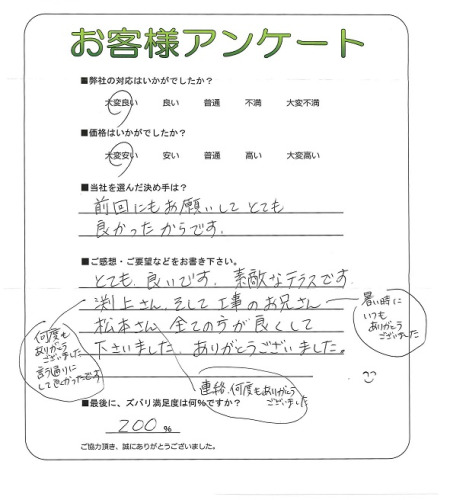 お客様アンケート
■弊社の対応はいかがでしたか？
大変良い 良い 普通 不満 大変不満
■価格はいかがでしたか？
大変安い 安い 普通 高い 大変高い
■当社を選んだ決め手は？
前回にもお願いしてとても
良かったからです。
■ご感想・ご要望などをお書き下さい。
とても良いです。素敵なテラスです。
渕上さん、そして工事のお兄さん
松本さん、全ての方が良くして
下さいました。ありがとうございました。
暑い時に
いつも
ありがとう
ございました
何度も
ありがとう
ございました
言う通りに
して良かったです
連絡、何度もありがとう
ございました
■最後に、ズバリ満足度は何%ですか？
200 %
ご協力頂き、誠にありがとうございました。